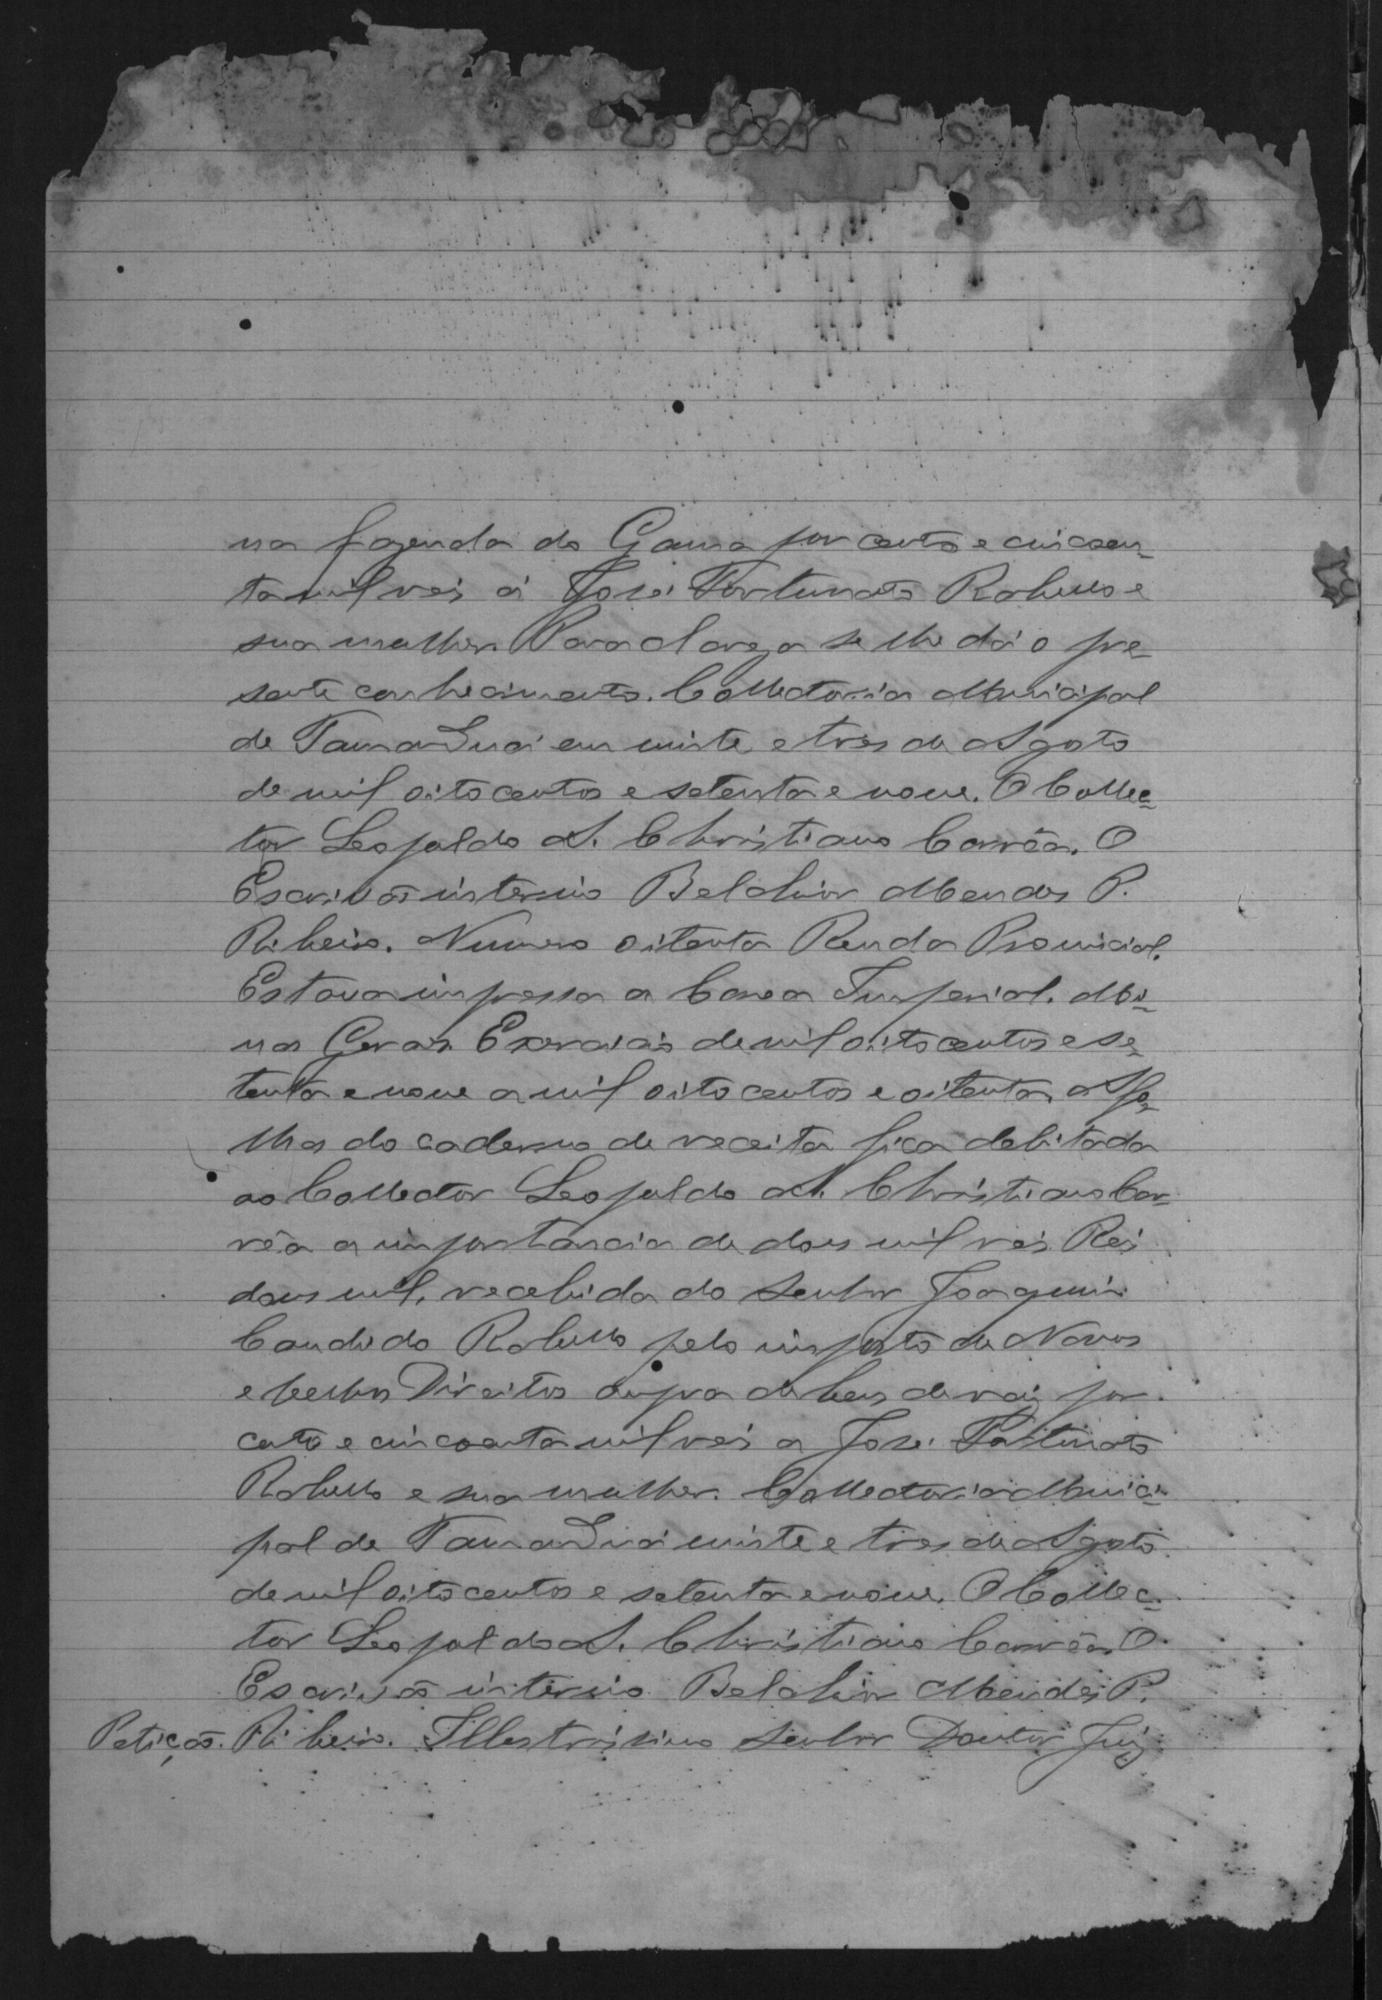 na fazenda do Gama por cento e cincoen-
ta mil reis á José Fortunato Rabello e
sua mulher. Para clareza se lhe dá o pre-
sente conhecimento. Collectoria Municipal
de Tamanduá em vinte e tres de Agosto
de mil oito centos e setenta e nove. O Collec-
tor Leopoldo A. Christiano Corrêa. O
Escrivão interino Belchior Mendes P.
Ribeiro. Numero oitenta Renda Provincial.
Estava impressa a Coroa Imperial. Mi-
nas Geraes Exercicio de mil oito centos e se-
tenta e nove a mil oito centos e oitenta. A fo-
lhas do caderno de receita fica debitada
ao Collector Leopoldo A. Christiano Cor-
rêa a importancia de dous mil reis Reis
dous mil, recebida do Senhor Joaquim
Candido Rabello pelo imposto de Novos
e Velhos Direitos compra de bens de raiz por
cento e cincoenta mil reis a José Fortunato
Rabello e sua mulher. Collectoria Munici-
pal de Tamanduá vinte e tres de Agosto
de mil oito centos e setenta e nove. O Collec-
tor Leopoldo A. Christiano Corrêa. O
Escrivão interino Belchior Mendes P.
Petição. Ribeiro. Illustrissimo Senhor Doutor Juiz